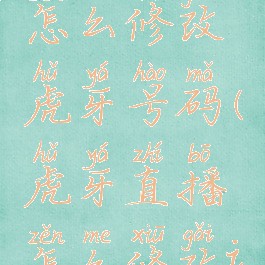 怎么修改
hǔ yá hào mǎ
虎牙号码(
hǔ yá zhí bō
虎牙直播
zěn me xiū gǎi
怎么修改